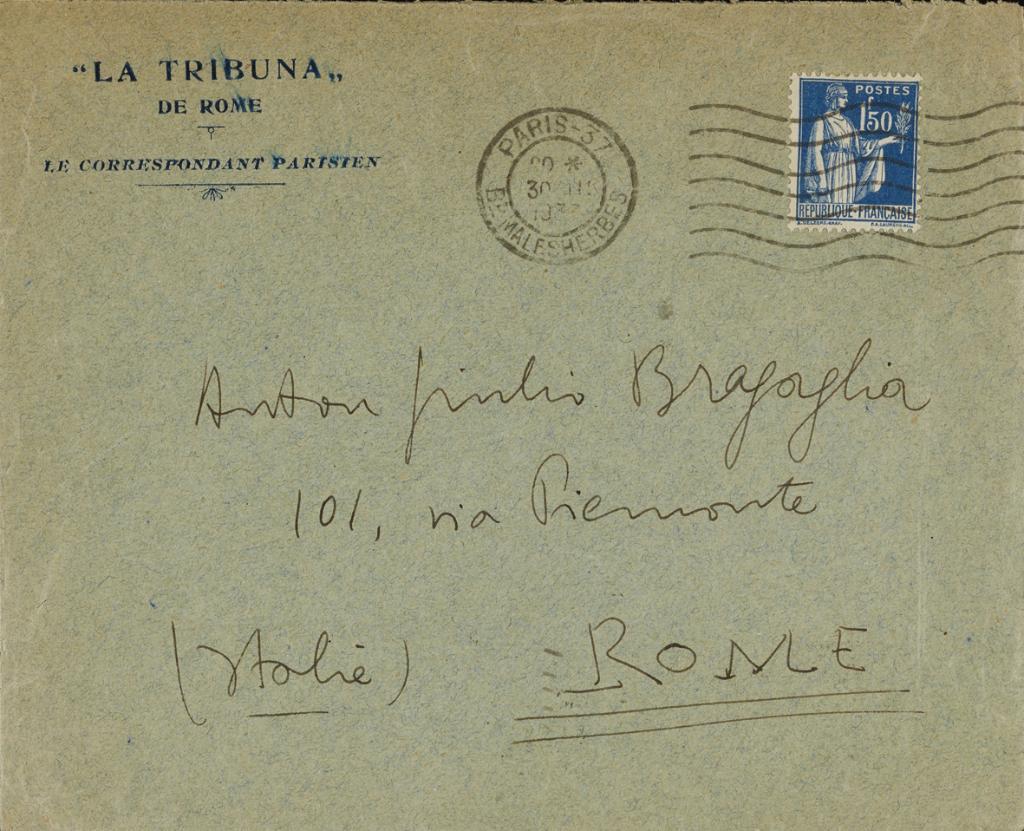 “LA TRIBUNA„
DE ROME
LE CORRESPONDANT PARISIEN
PARIS-37
20 *
30
BD MALESHERBES
POSTES
1F50
REPUBLIQUE-FRANÇAISE
Anton Giulio Bragaglia
101, via Piemonte
(Italie)
ROME